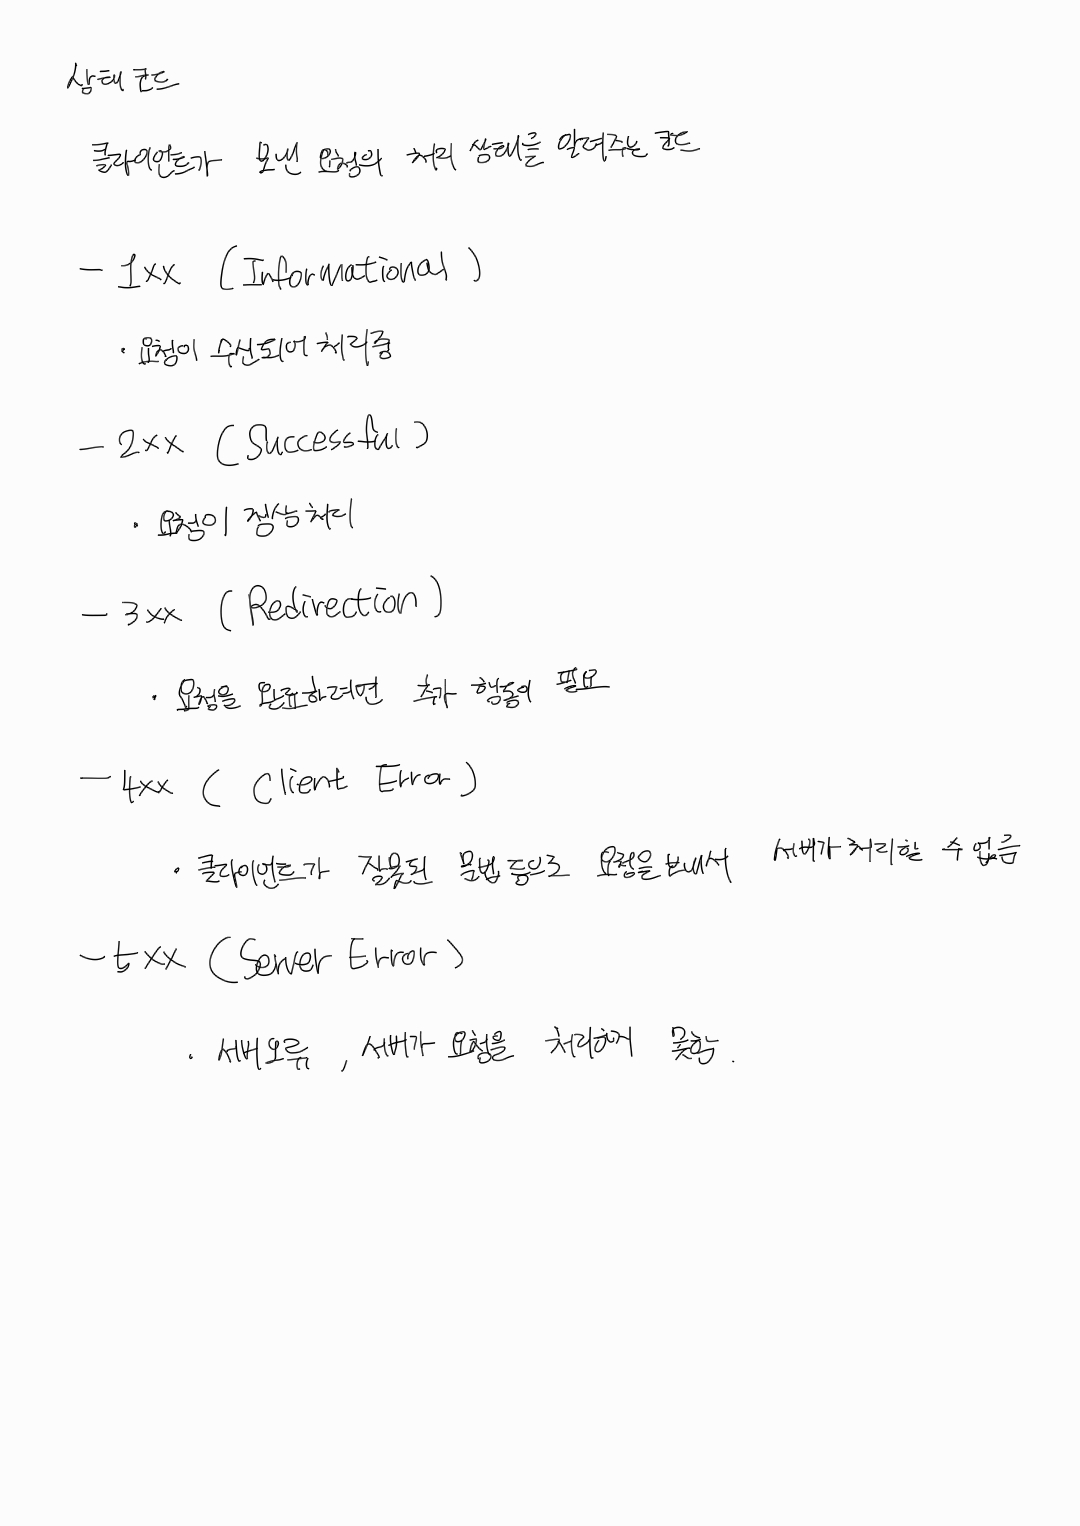 상태 코드
클라이언트가 보낸 요청의 처리 상태를 알려주는 코드
- 1xx (Informational)
• 요청이 수신되어 처리중
- 2xx (Successful)
• 요청이 정상처리
- 3xx (Redirection)
• 요청을 완료하려면 추가 행동이 필요
- 4xx (Client Error)
• 클라이언트가 잘못된 문법 등으로 요청을 보내서 서버가 처리할 수 없음
- 5xx (Server Error)
• 서버오류, 서버가 요청을 처리하지 못함.